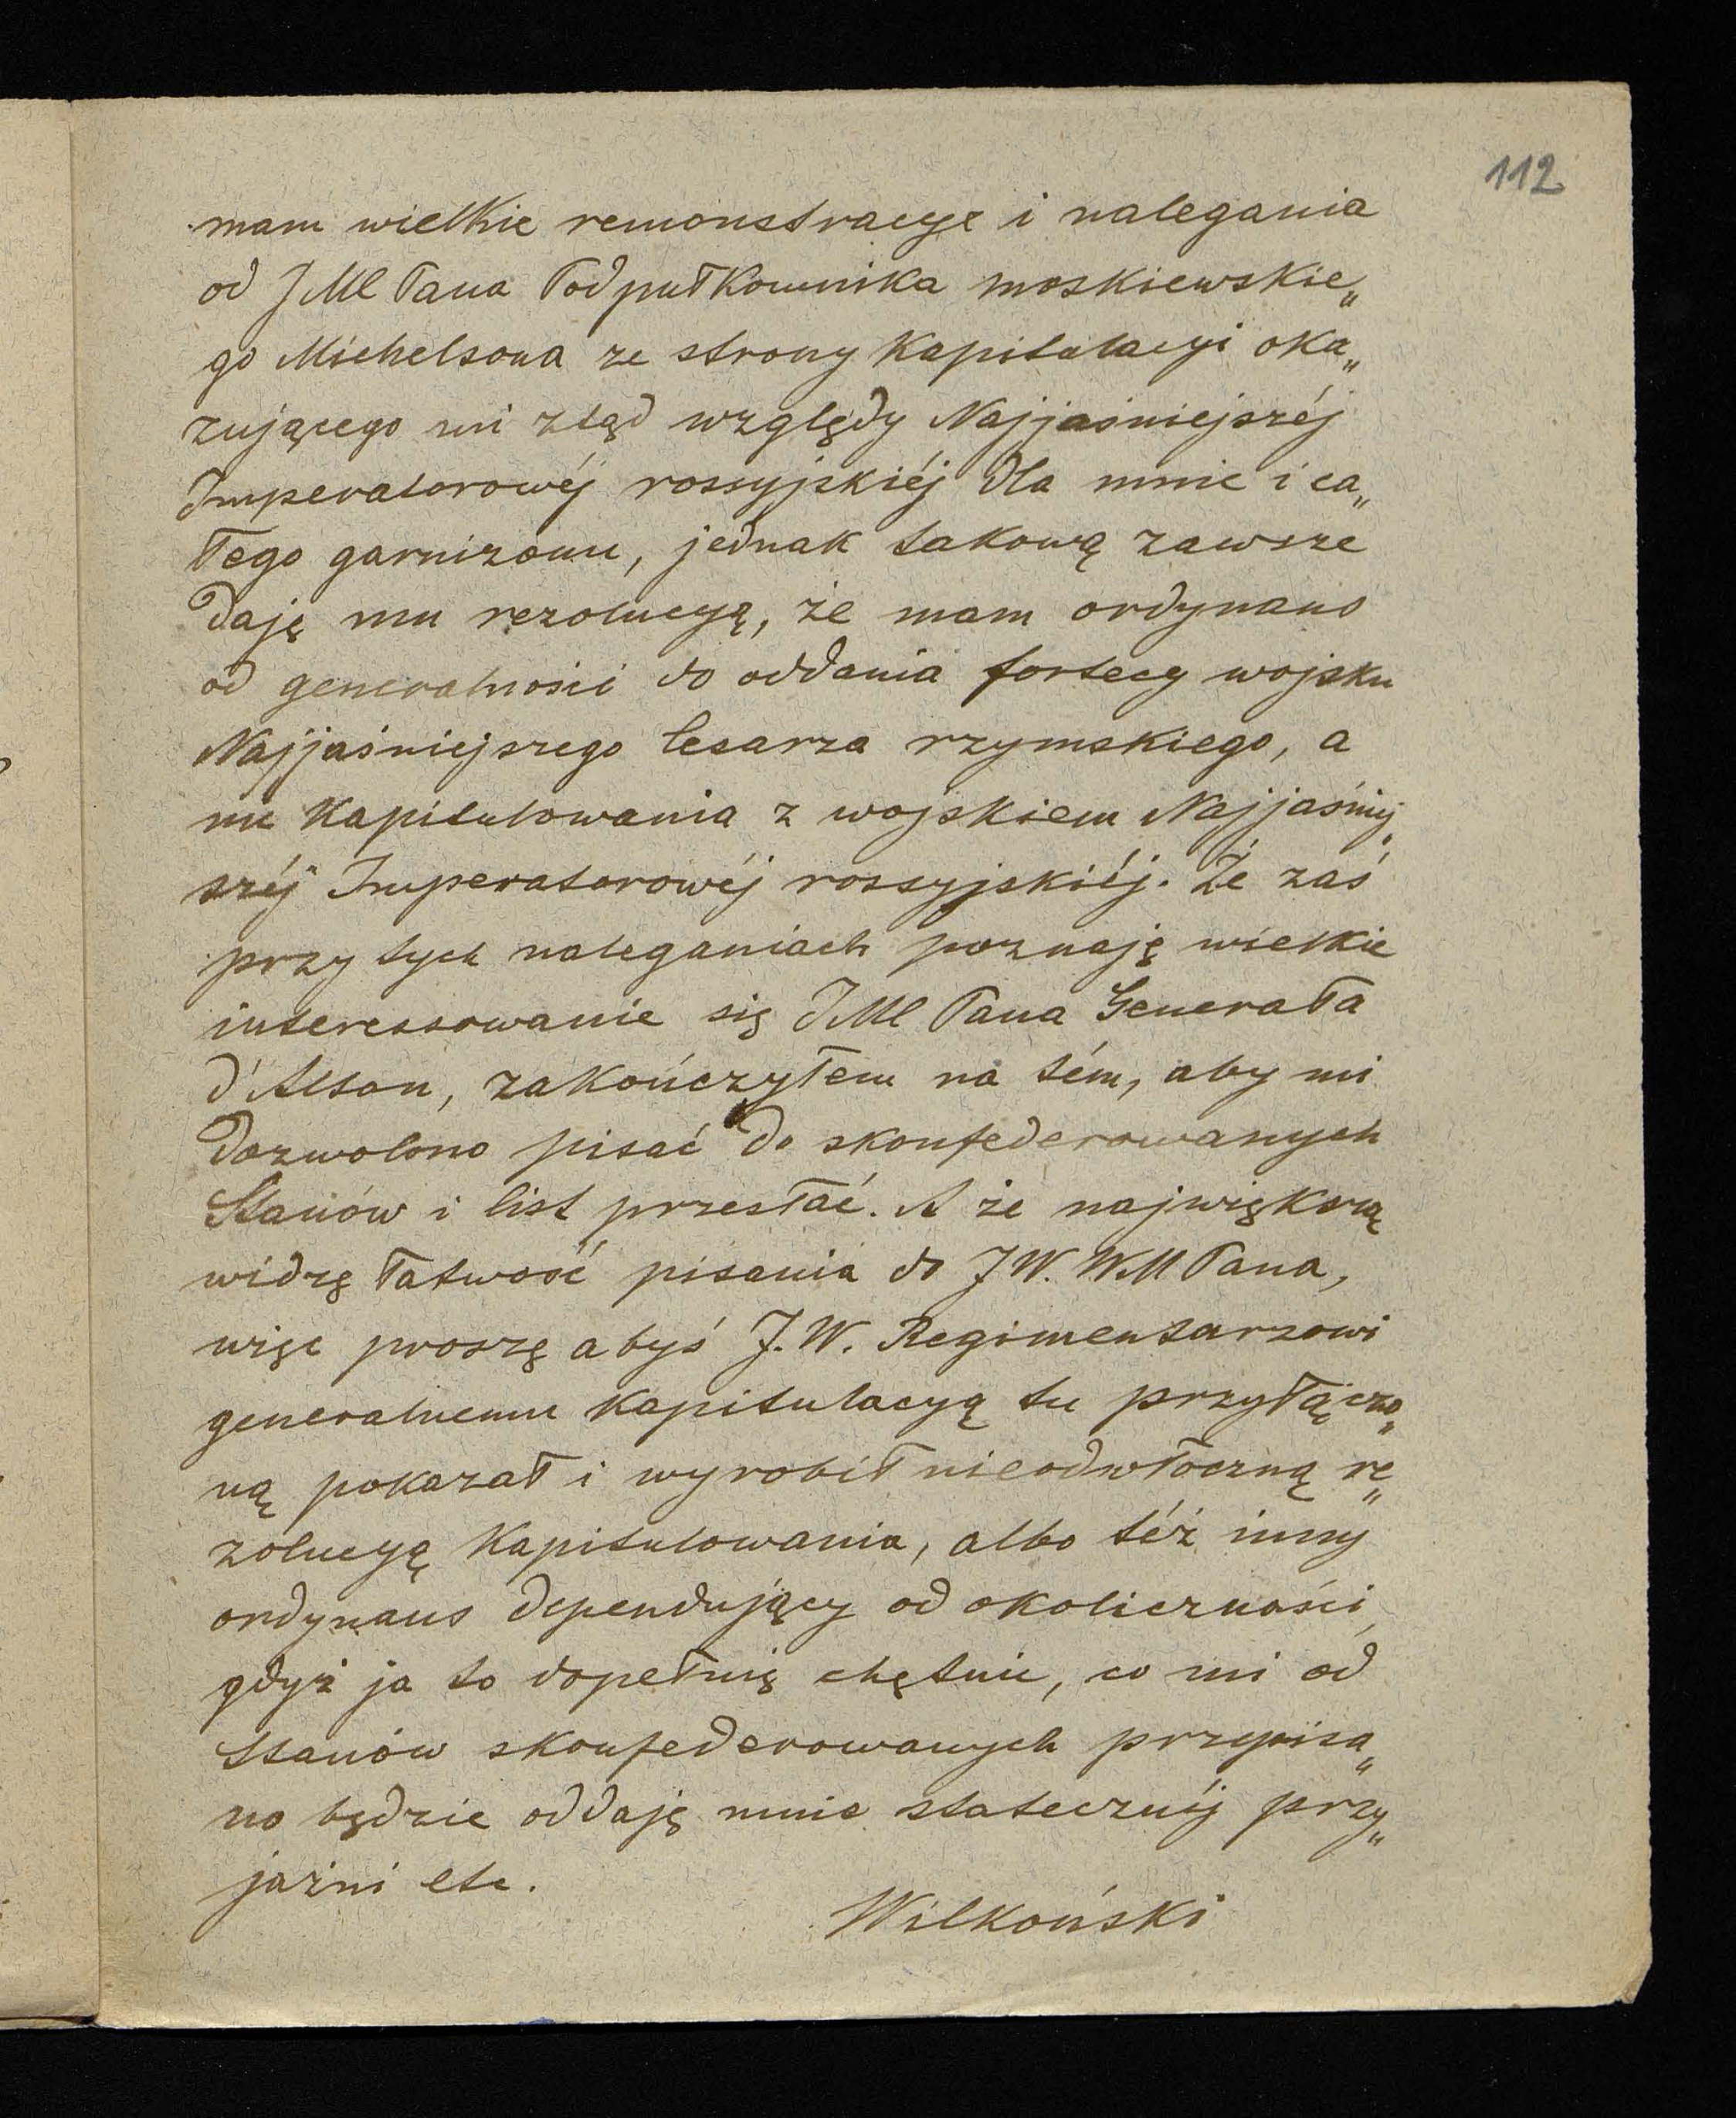 112
mam wielkie remonstracye i nalegania
od JMC Pana Podpułkownika moskiewskie„
go Michelsona ze strony kapitulacyi oka„
zującego mi ztąd względy Najjaśniejszéj
Imperatorowéj rossyjskiéj dla mnie i ca„
łego garnizonu, jednak takową zawsze
daję mu rezolucyą, że mam ordynans
od generalności do oddania fortecy wojsku
Najjaśniejszego Cesarza rzymskiego, a
nie kapitulowania z wojskiem Najjaśniej„
széj Imperatorowéj rossyjskiéj. Że zaś
przy tych naleganiach poznaję wielkie
interessowanie się JMC Pana Generała
d'Alton, zakończyłem na tém, aby mi
dozwolono pisać do skonfederowanych
Stanów i list przesłać. A że największą
widzę łatwość pisania do JW. WM Pana,
więc proszę abyś J.W. Regimentarzowi
generalnemu kapitulacyą tu przyłączo„
ną pokazał i wyrobił nieodwłoczną re„
zolucyą kapitulowania, albo téż inny
ordynans dependujący od okoliczności,
gdyż ja to dopełnię chętnie, co mi od
Stanów skonfederowanych przepisa„
no będzie oddaję mnie statecznéj przy„
jaźni etc.
Wilkoński